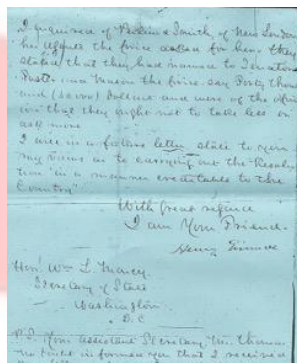 I inquired of Perkins & Smith, of New London
her agents the price asked for her they
stated that they had named to Senators
Foster and Mason the price say Forty thous
and (40,000) Dollars and were of the opin
ion that they ought not to take less or
ask more
I will in a future letter state to you
my views as to carrying out the Resolu
tion "in a manner creditable to the
Country"
With great regard
I am Your Friend.
Henry
Hon. Wm L. Marcy.
Secretary of State
Washington
D. C
P.S. Your assistant Secretary Mr. Thomas
informed you that I received